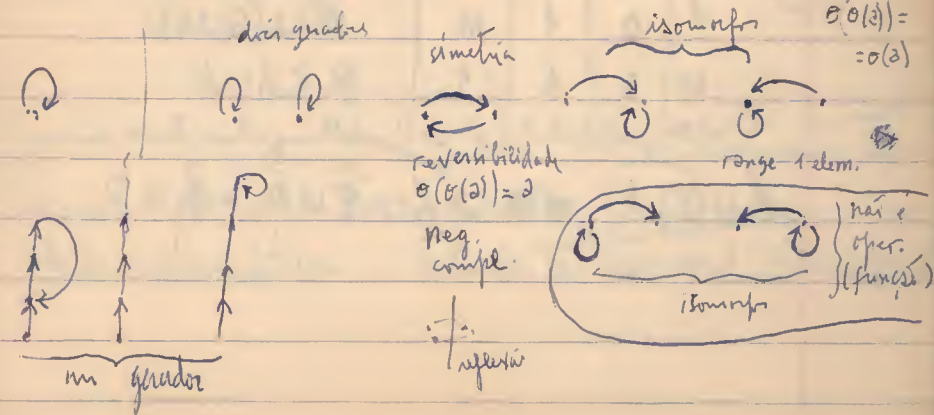 dois geradores
simetria
isomorfos
σ(σ(a))=
=σ(a)
reversibilidade
σ(σ(a))=a
range 1 elem.
neg.
comple.
não é
oper.
(função)
isomorfos
reflexão
um gerador